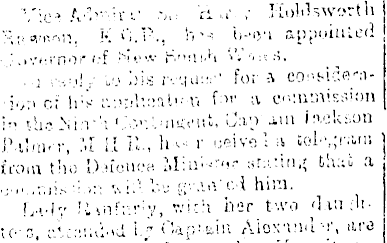 Vice-Admiral Sir Harry Holdsworth
Rawson, K.C.B., has been appointed
Governor of New South Wales.
In reply to his request for a considera-
tion of his application for a commission
in the Ninth Contingent, Captain Jackson
Palmer, M.H.R., has received a telegram
from the Defence Minister stating that a
commission will be granted him.
Lady Ranfurly, with her two daugh-
ters, attended by Captain Alexander, are